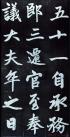 五十一自承務
郎三遷官至奉
議大夫年之日